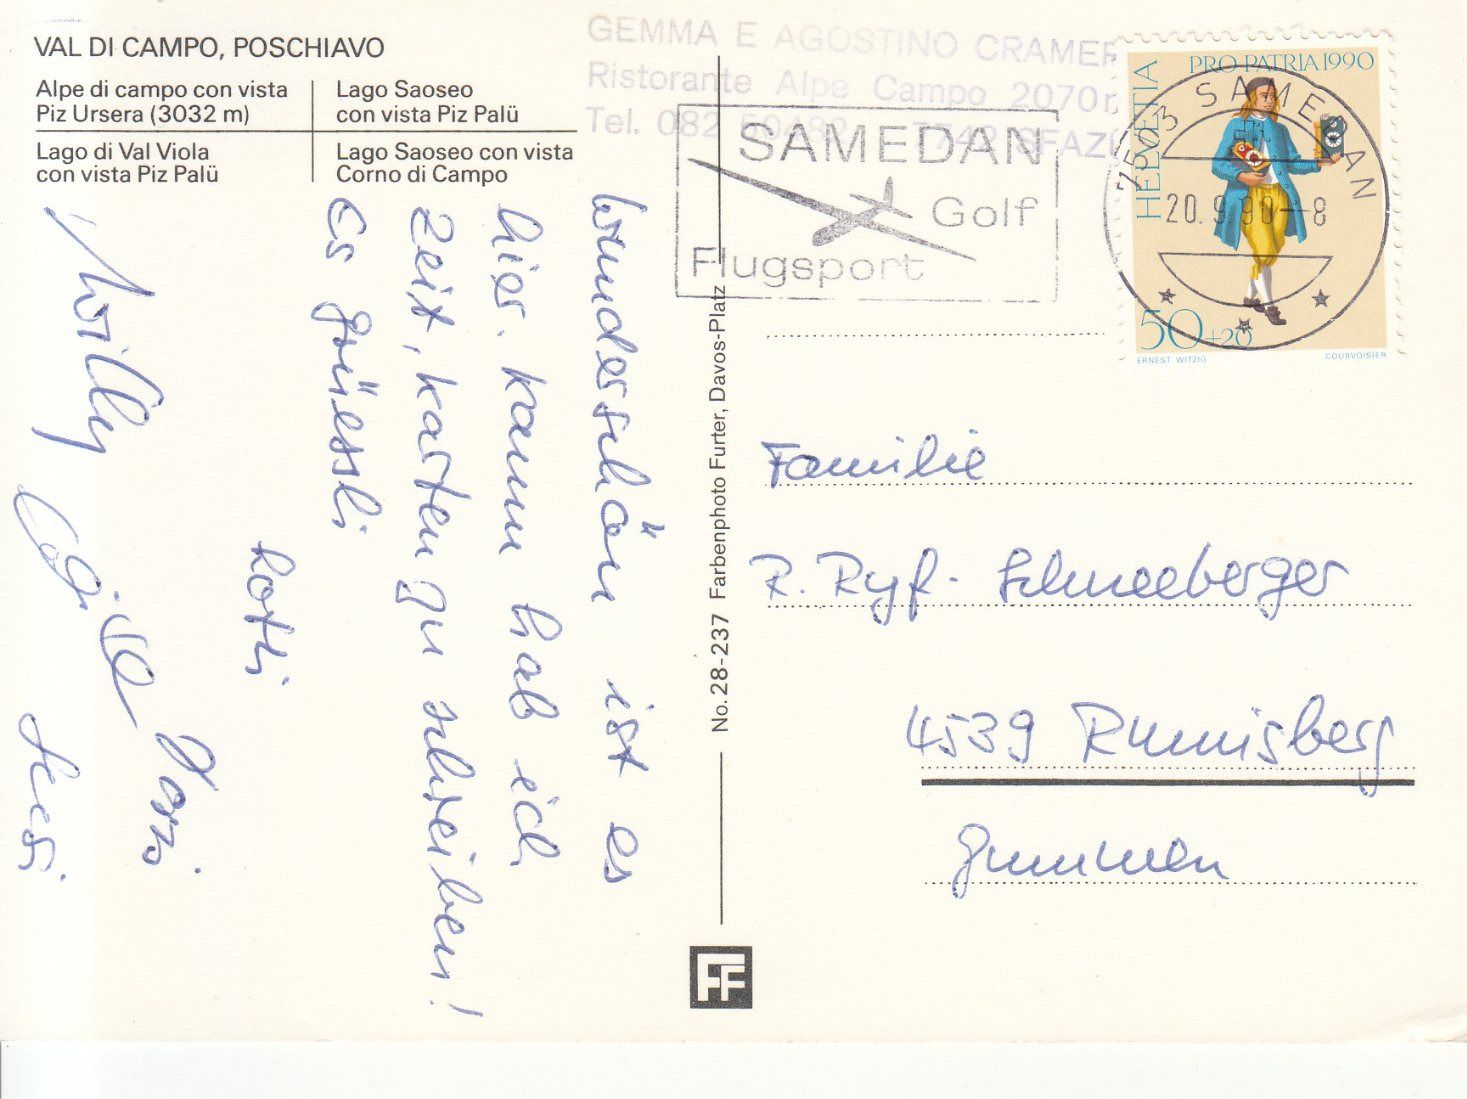 VAL DI CAMPO, POSCHIAVO
Alpe di campo con vista
Piz Ursera (3032 m)
Lago Saoseo
con vista Piz Palü
Lago di Val Viola
con vista Piz Palü
Lago Saoseo con vista
Corno di Campo
GEMMA E AGOSTINO CRAMER
Ristorante Alpe Campo 2070
Tel. 082 7742 SFAZ
SAMEDAN
Golf
Flugsport
7503 SAMEDAN
20.9.90-8
HELVETIA
PRO PATRIA 1990
50+20
ERNEST WITZIG
COURVOISIER
wunderschön ist es
hier. Kaum hab ich
Zeit, Karten zu schreiben!
Es grüessli
Rotti
Willy
No. 28-237 Farbenphoto Furter, Davos-Platz
Familie
R. Ryf-Schneeberger
4539 Rumisberg
FF